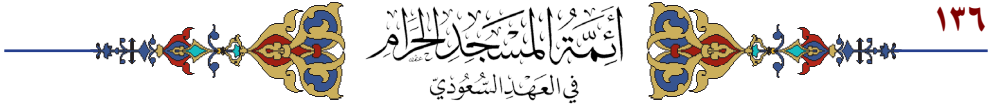 ١٣٦
أَئِمَّةُ الْمَسْجِدِ الْحَرَامِ
فِي الْعَهْدِ السُّعُودِيّ